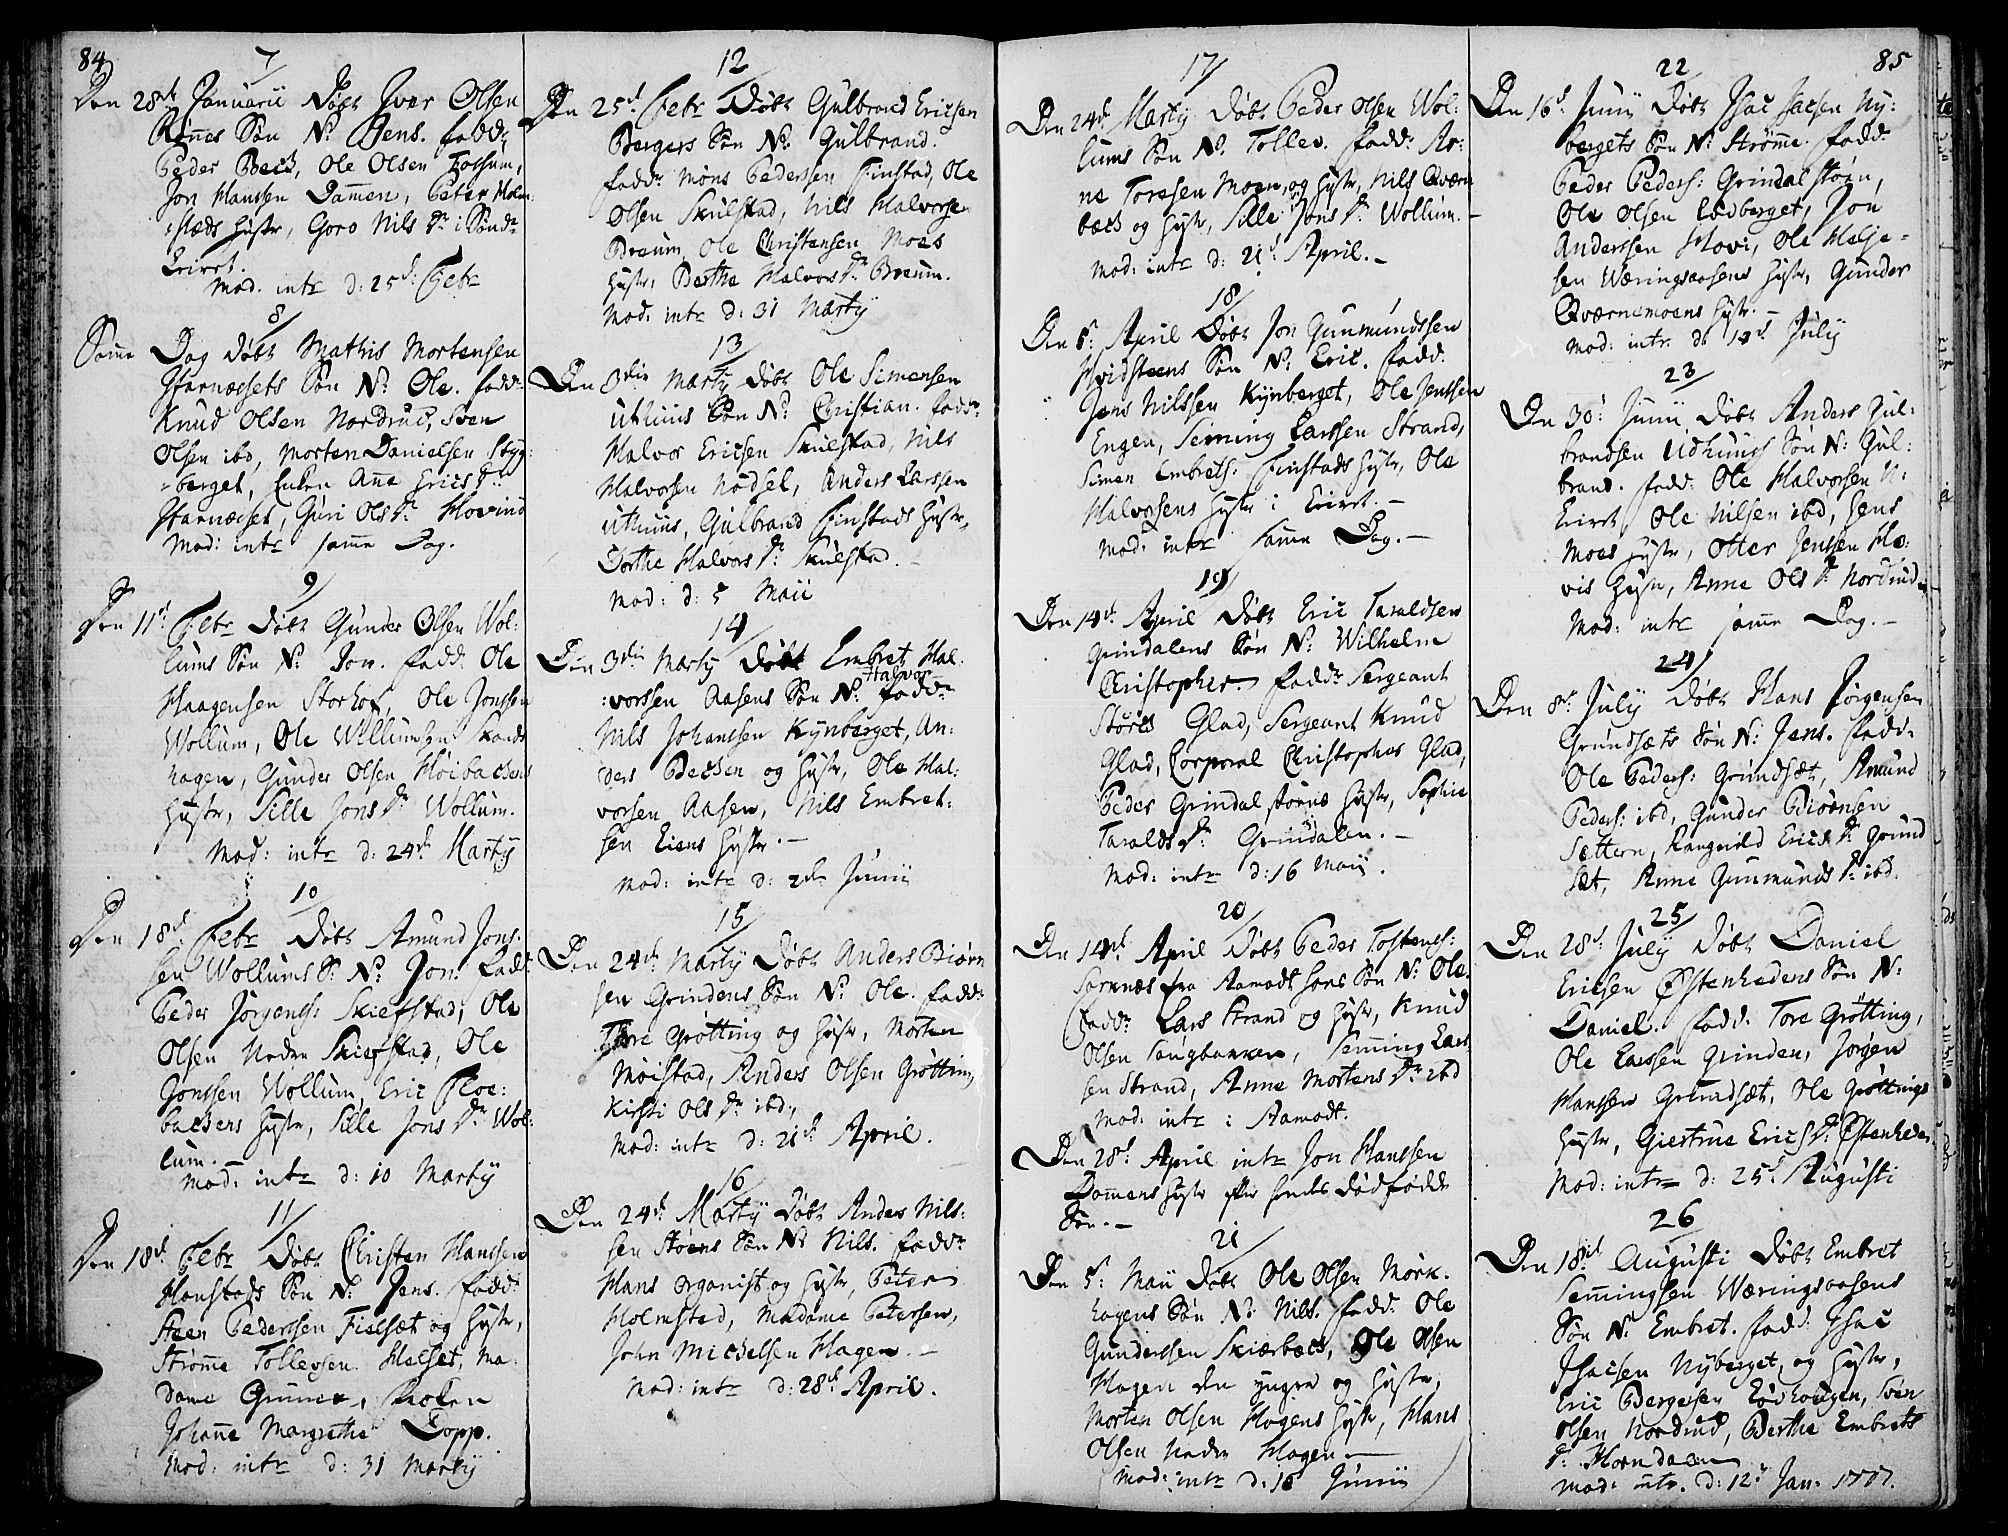 84
7
Den 28de Januarii Döbt Iver Olsen
Rönnes Sön N: Jens. fadd:
Peder Beck, Ole Olsen Fossum,
Jon Hanssen Dammen, Peter Holm-
stæds Hustr, Goro Nils Dr i Söndr
Eivret.
Mod. intr d: 25d: Febr
8
Samme Dag döbt Mathis Mortensen
Starnæsets Sön N: Ole. fadd:
Knud Olsen Nordrud, Sven
Olsen ibd, Morten Danielsen Styg-
berget, Enken Anne Erics Dr
Starnæset, Guri Ols Dr Hovind
Mod: intr samme Dag.
9
Den 11d Febr Döbt Gunder Olsen Wol:
lums Sön N: Jon. fadd: Ole
Haagensen Storhof, Ole Jonssen
Wollum, Ole Willumsen Skands-
hagen, Gunder Olsen Höibackens
Hustr, Sille Jons Dr Wollum.
Mod: intr d: 24de Martij
10
Den 18d: Febr Döbt Amund Jons-
sen Wollums S: N: Jon. Fadd:
Peder Jörgens: Skiefstad, Ole
Olsen Nedre Skiefstad, Ole
Gonssen Wollum, Eric Floe:
backens Hustr, Sille Jons Dr Wol:
lum.
Mod: intr d: 10 Martij
11
Den 18d Febr Döbt Christen Hanssen
Hanstads Sön N: Jens. fadd:
Steen Pederssen Fielsæt og Hustr,
Strömme Tollessen Halset, Ma:
dame Grüner, Fröken
Johanne Margrethe Popp.
Mod: intr d: 31 Martij
12
Den 25d Febr Döbt Gulbrand Ericsen
Bergers Sön N: Gulbrand.
fadd: Möns Pederssen Finstad, Ole
Olsen Skulstad, Nils Halvorsen
Braum, Ole Christensen Moes
Hustr, Berthe Halvors Dr Braum.
Mod: intr d: 31 Martij
13
Den 3die Martij Döbt Ole Simensen
Uthuus Sön N: Christian. fadd:
Halvor Ericsen Skulstad, Nils
Halvorsen Nödsel, Anders Larssen
Uthuus, Gulbrand Finstads Hustr,
Dorthe Halvors Dr Skulstad.
Mod: d: 5 Maii
14
Den 3die Martij Döbt Embret Hal-
vorssen Aasens Sön N: Halvor. fadd:
Nils Johanssen Kynberget, An:
ders Becken og Hustr, Ole Hal:
vorsen Aasen, Nils Embret:
sen Eiens Hustr.
Mod: intr d: 2den Junii
15
Den 24d: Martij Döbt Anders Biörn
sen Grindens Sön N: Ole. fadd:
Tore Grötting og Hustr, Morten
Moistad, Anders Olsen Grötting
Kirsti Ols Dr ibd,
Mod: intr d: 21d April.
16
Den 24d: Martij Döbt Anders Nils:
sen Stöens Sön N: Nils. fadd:
Hans Organist og Hustr, Peter
Holmsted, Madame Petersen,
John Michelsen Hagen.
Mod: intr d: 28d April.
17
Den 24d. Martij Döbt Peder Olsen Wol:
lums Sön N: Tollev. fadd: Ar:
ne Toresen Moen, og Hustr, Nils Qværn
beck og Hustr, Sille Jons Dr Wollum.
Mod: intr d: 21d April.
18
Den 5: April Döbt Jon Gunmundssen
Hvidsteens Sön N: Eric. fadd:
Jens Nilssen Kynberget, Ole Jenssen
Engen, Seming Larssen Strand,
Simen Embrets: Finstads Hustr, Ole
Halvorsens Hustr i Eivret.
Mod: intr samme Dag.
19
Den 14d: April Döbt Eric Taraldsen
Grindalens Sön N: Wilhelm
Christopher. fadd: Sergeant
Störes Glad, Sergeant Knud
Glad, Corporal Christopher Glad,
Peder Grindal störns Hustr, Sophie
Taralds Dr Grindalen.
Mod: intr d: 16 Maii.
20
Den 14d: April Döbt Peder Tostens:
Sornæs fra Aamodt hans Sön N: Ole.
fadd: Lars Strand og Hustr, Knud
Olsen Laugbacken, Semming Lars
sen Strand, Anne Mortens Dr ibd
Mod: intr i Aamodt.
Den 28d: April intr Jon Hanssen
Dammens Hustr efter hendes dödfödde
Sön.
21
Den 5: Maii Döbt Ole Olsen Mörk-
hagens Sön N: Nils. fadd: Ole
Gunderssen Skiærbeck, Ole Olsen
Hagen den yngre og Hustr,
Morten Olsen Hagens Hustr, Hans
Olsen Nedre Hagen.
Mod: intr d: 16 Junii
85
22
Den 16d Junii Döbt Isac Isacsen Ny:
bergets Sön N: Strömme. fadd:
Peder Peders: Grindalstören,
Ole Olsen Lödberget, Jon
Anderssen Hovi, Ole Helje-
sen Wæringsaasens Hustr, Gunder
Qværnemoens Hustr.
Mod: intr d: 14d July
23
Den 30d Junii Döbt Anders Gul:
brandsen Udhuus Sön N: Gul:
brand. fadd: Ole Halvorsen N:
Eivret, Ole Nilsen ibd, Jens
Moes Hustr, Otter Jenssen Ho:
vis Hustr, Anne Ols Dr Nordrud
Mod: intr samme Dag.
24
Den 8d July Döbt Hans Jörgensen
Grundsæts Sön N: Jens. fadd:
Ole Peders: Grundsæt, Amund
Peders: ibd, Gunder Biörnsen
Sættern, Rangnild Erics Dr Grund
sæt, Anne Gunmunds Dr ibd.
25
Den 28d July Döbt Daniel
Ericsen Østenhedens Sön N:
Daniel. fadd: Tore Grötting,
Ole Larssen Grinden, Jörgen
Hanssen Grundsæt, Ole Gröttings
Hustr, Giertrue Erics Dr Østenheden.
Mod: intr d: 25d Augusti
26
Den 18d Augusti Döbt Embret
Semmingsen Wæringsaasens
Sön N: Embret. fadd: Isac
Isacsen Nyberget, og Hustr,
Eric Bergersen Lödhougen, Sven
Olsen Nordrud, Berthe Embrets
Dr: Horndalen
Mod: intr. d: 12d Jan. 1777.